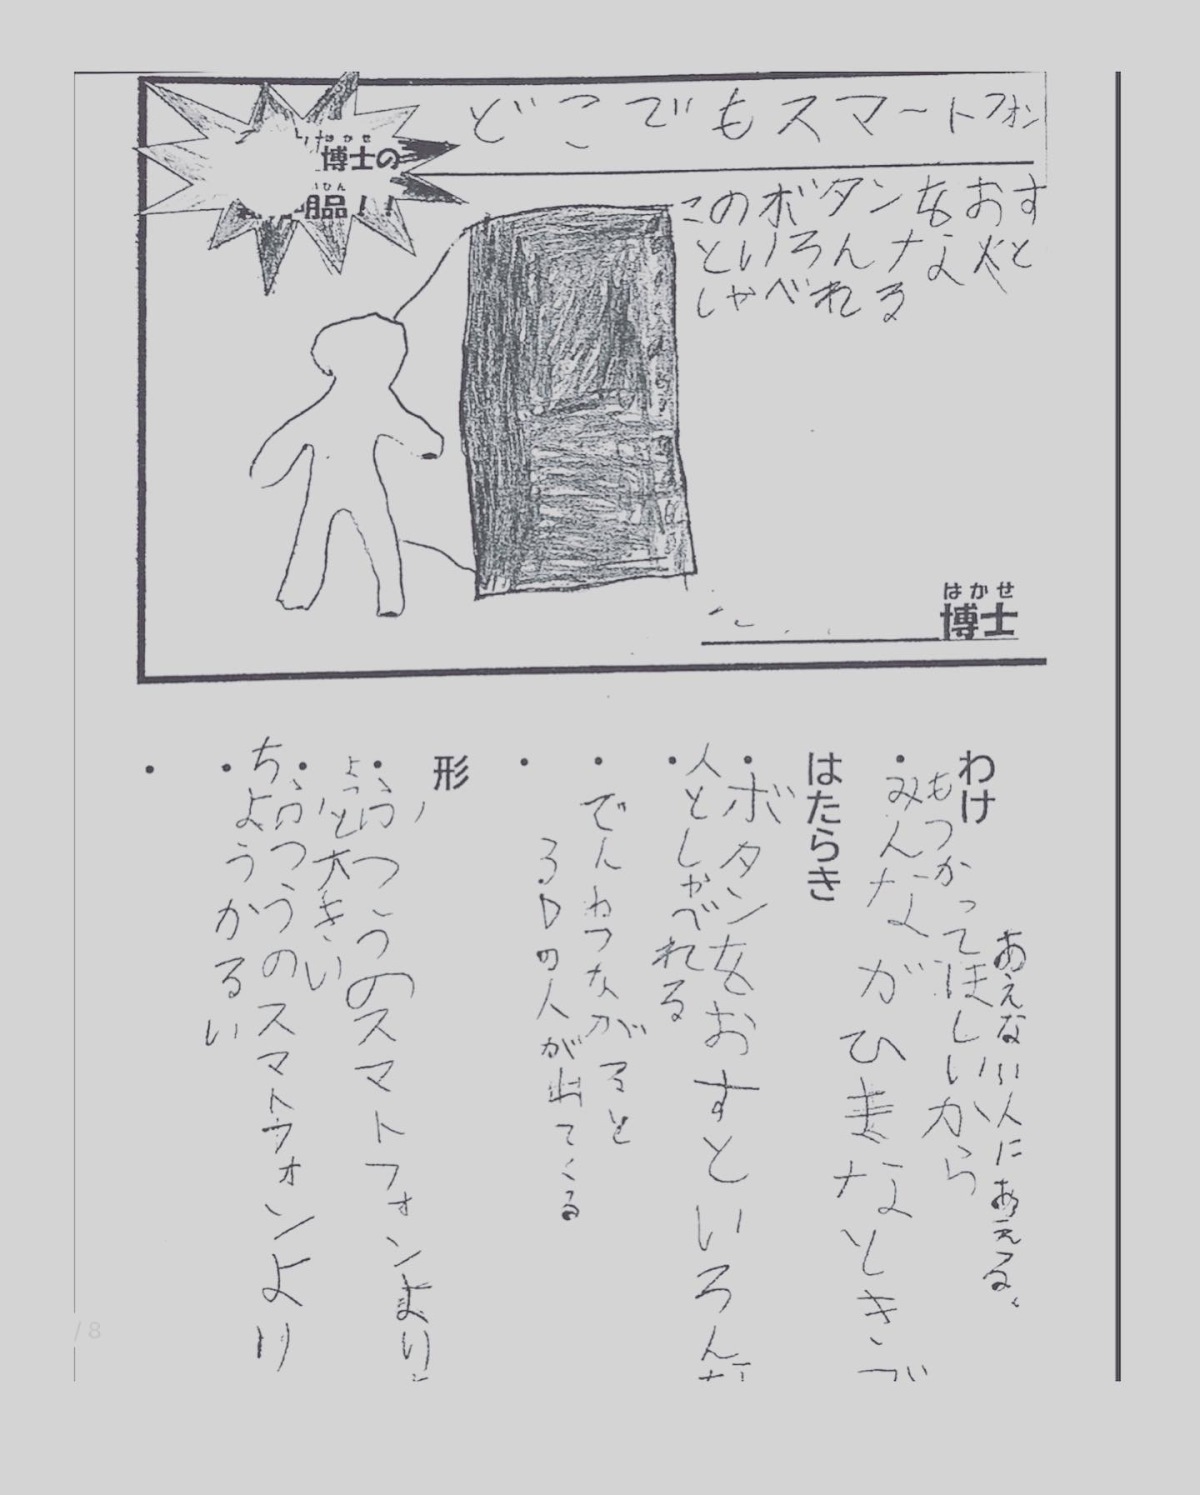 はかせ
博士の
明品!!
どこでもスマートフォン
このボタンをおす
といろんな人と
しゃべれる
はかせ
博士
わけ
あえない人にあえる。
もつかってほしいから
・みんながひまなときで
はたらき
・ボタンをおすといろんな
・人としゃべれる
・でんわつながると
3Dの人が出てくる
・
形
・ふつうのスマトフォンよりち
よっと大きい
・ふつうのスマトフォンより
・ちようかるい
・
/ 8